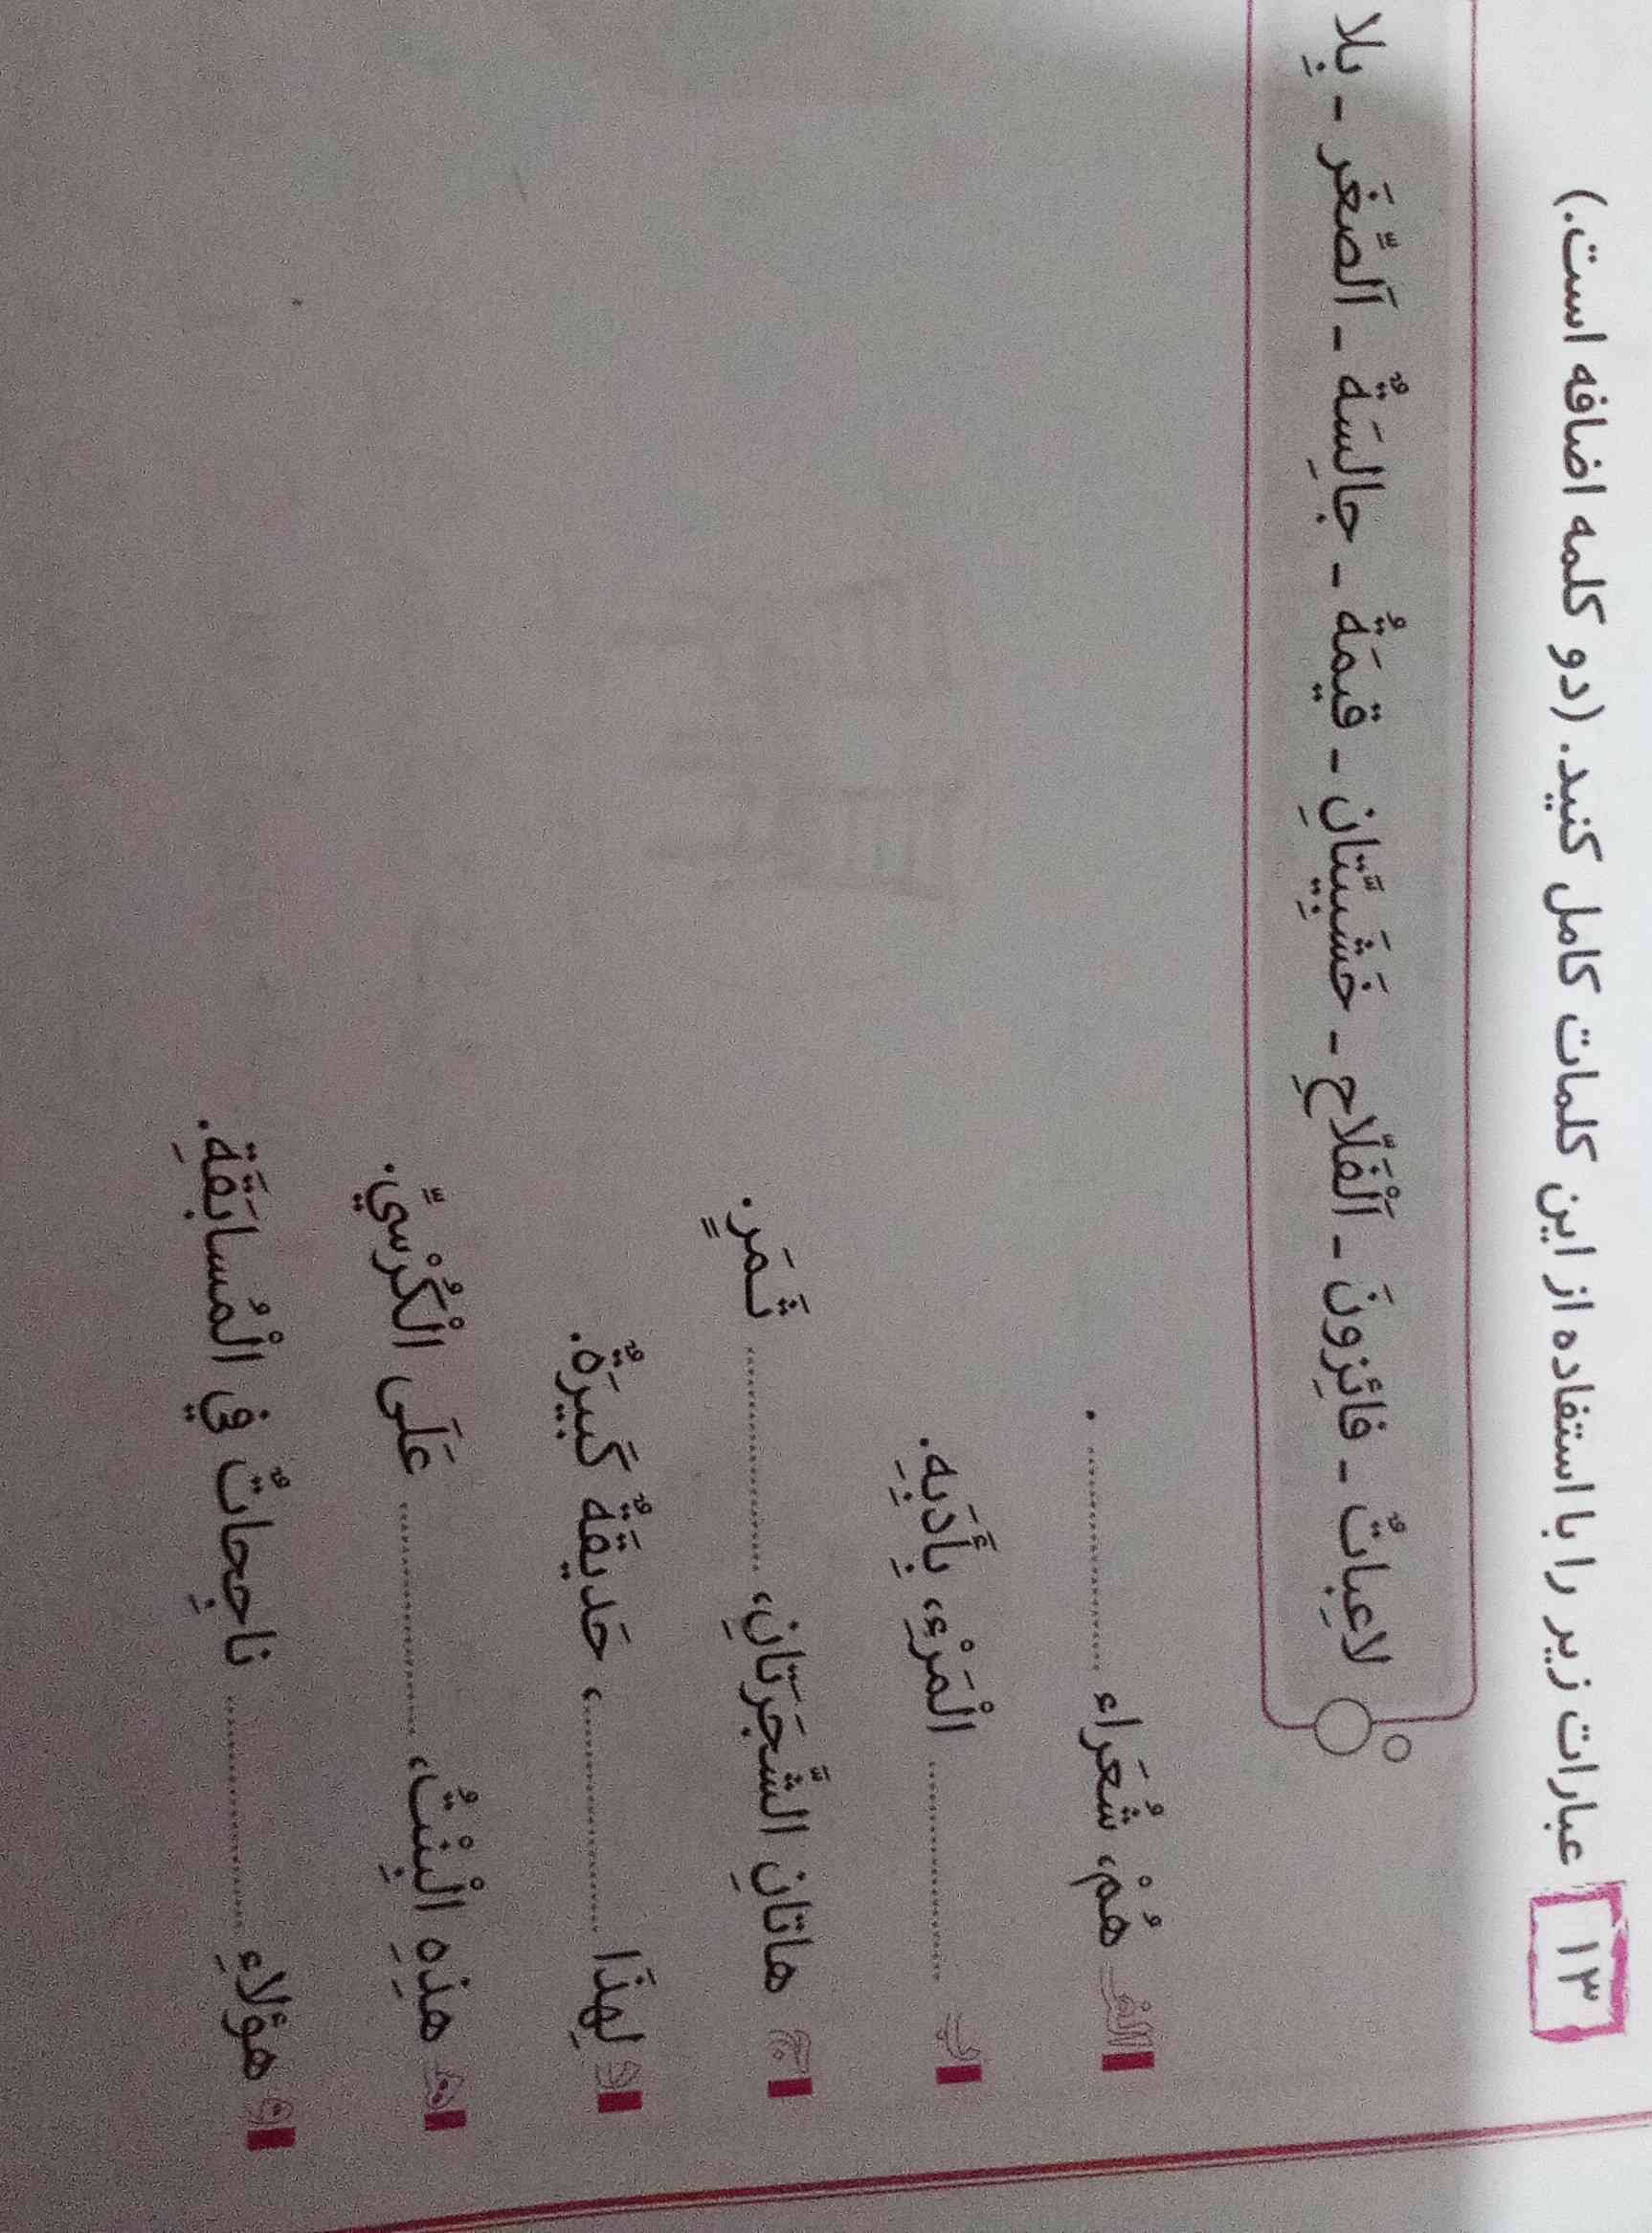 ۱۳ عبارات زیر را با استفاده از این کلمات کامل کنید. (دو کلمه اضافه است.)
لاعِباتٌ - فائِزونَ - اَلْفَلّاحِ - خَشَبیَّتانِ - قیمَةُ - جالِسَةٌ - اَلصِّغَر - بِلا
الف هُمْ، شُعَراء .............. .
ب .............. الْمَرْءِ، بِأَدَبِهِ.
ج هاتانِ الشَّجَرَتانِ، .............. ثَمَرٍ.
د لِهذَا .............. ، حَديقَةٌ كَبيرَةٌ.
هـ هذِهِ الْبِنْتُ، .............. عَلَى الْكُرْسيِّ.
و هؤُلاءِ .............. ناجِحاتٌ فِي الْمُسابَقَةِ.